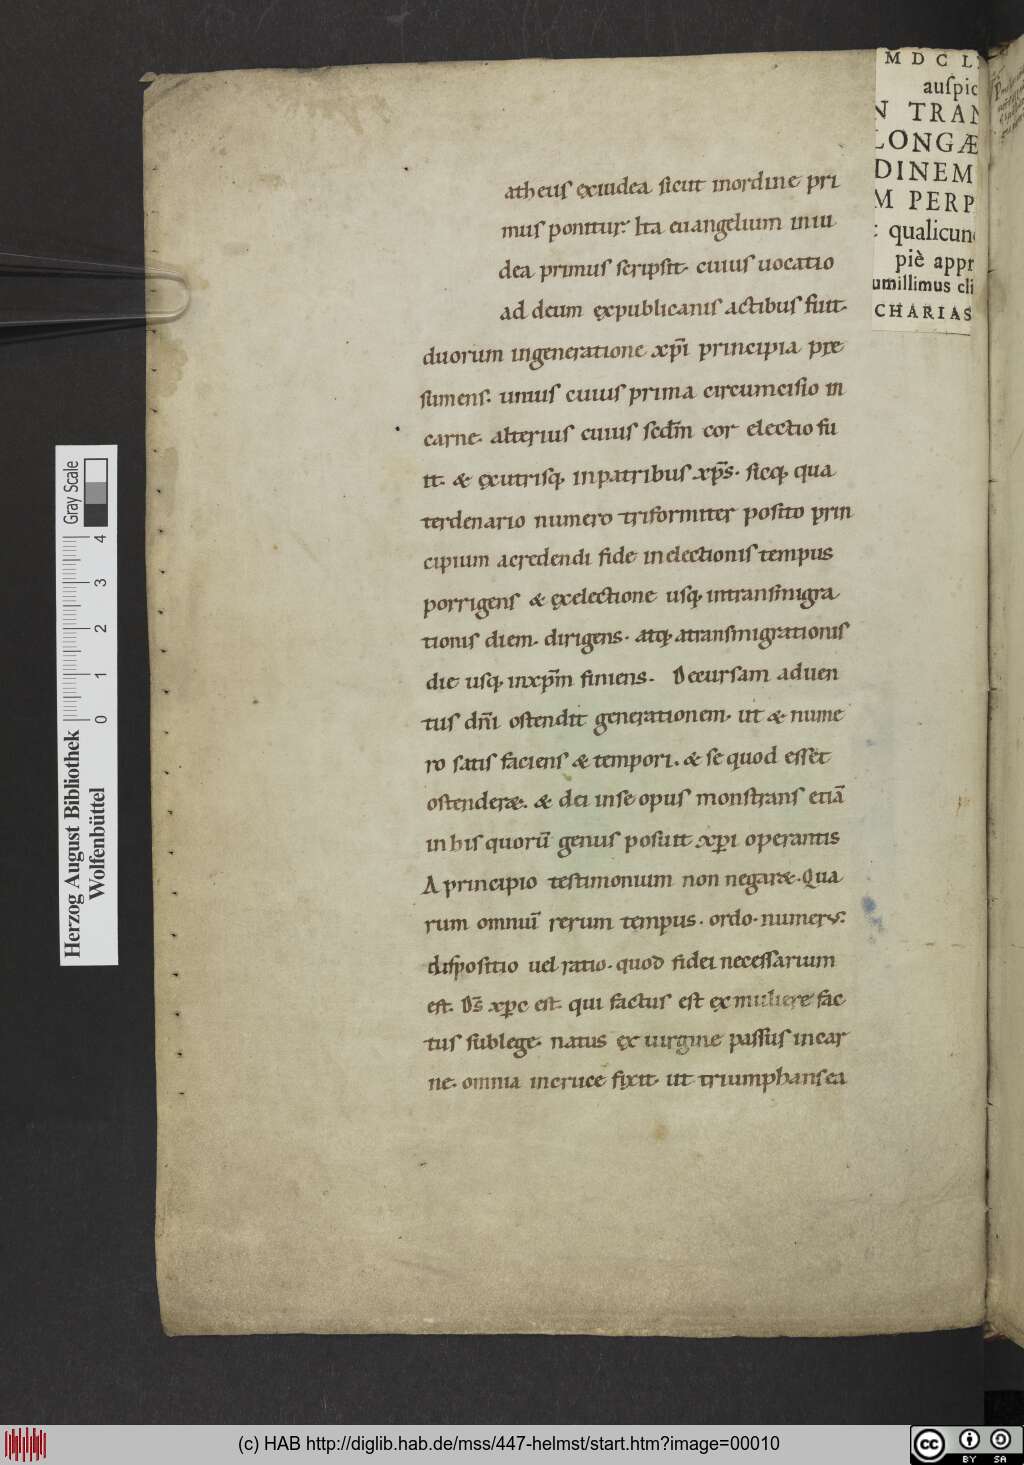 atheus ex iudea sicut in ordine pri
mus ponitur. Ita euangelium in iu
dea primus scripsit. cuius uocatio
ad deum ex publicanis actibus fuit.
duorum in generatione xp̄i principia pre
sumens. unius cuius prima circumcisio in
carne. alterius cuius scd̄m cor electio fu
it. & ex utrisq; in patribus xp̄s. sicq; qua
terdenario numero triformiter posito prin
cipium a credendi fide in electionis tempus
porrigens & ex electione usq; in transmigra
tionis diem. dirigens. atq; a transmigrationis
die usq; in xp̄m finiens. Decursam aduen
tus dn̄i ostendit generationem. ut & nume
ro satis faciens & tempori. & se quod esset
ostenderet. & dei in se opus monstrans etiā
in his quorū genus posuit xp̄i operantis
A principio testimonium non negaret. Qua
rum omniū rerum tempus. ordo. numerus.
dispositio uel ratio. quod fidei necessarium
est. Ds̄ xp̄c est. qui factus est ex muliere fac
tus sub lege. natus ex uirgine passus in car
ne. omnia in cruce fixit. ut triumphans ea
M D C L
auſpic
N TRAN
LONGÆ
DINEM
M PERP
qualicun
piè appr
umillimus cli
CHARIAS
Herzog August Bibliothek
Wolfenbüttel
0 1 2 3 4
Gray Scale
(c) HAB http://diglib.hab.de/mss/447-helmst/start.htm?image=00010
cc BY SA